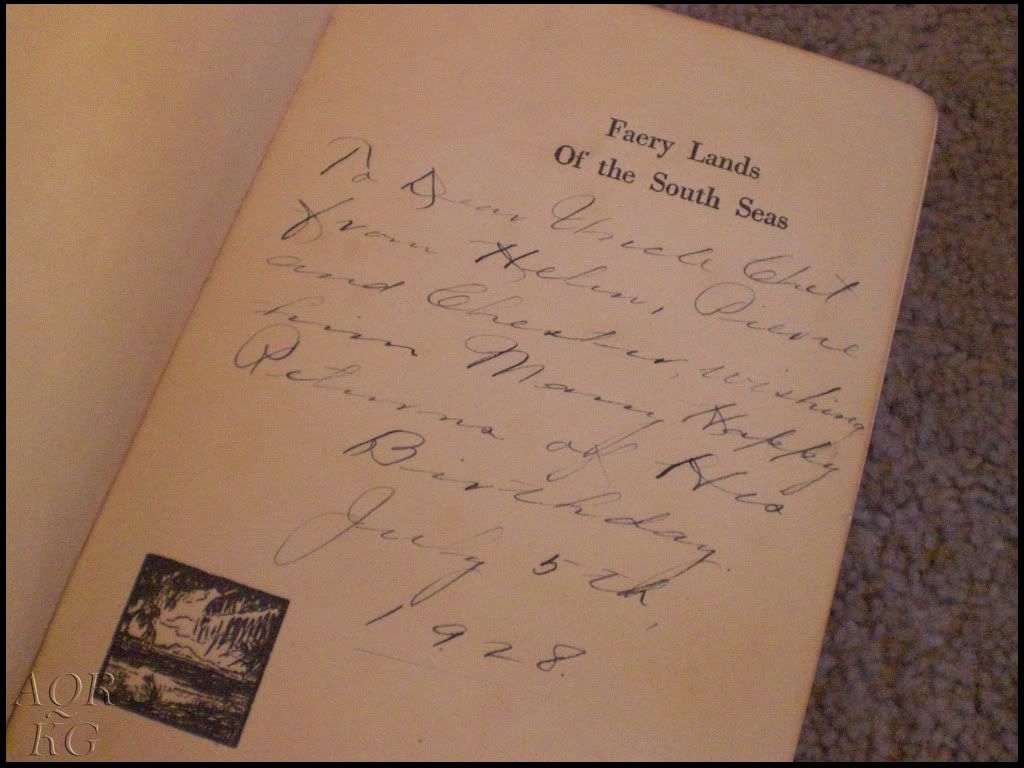 Faery Lands
Of the South Seas
To Dear Uncle Chet
from Helen, Pierre
and Chester, wishing
him Many Happy
Returns of His
Birthday.
July 5th,
1928.
AQR
KG